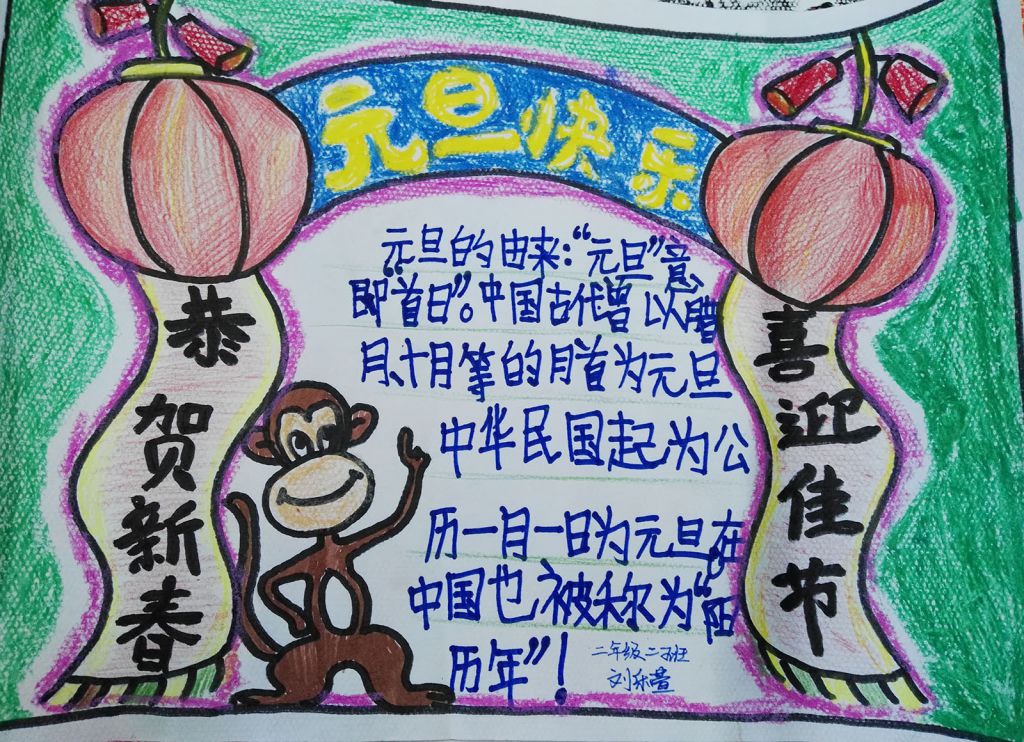 元旦快乐
恭贺新春
元旦的由来:“元旦”意
即“首日”。中国古代曾以腊
月、十月等的月首为元旦
中华民国起为公
历一月一日为元旦,在
中国也被称为“阳
历年”!
喜迎佳节
二年级二班
刘乐萱